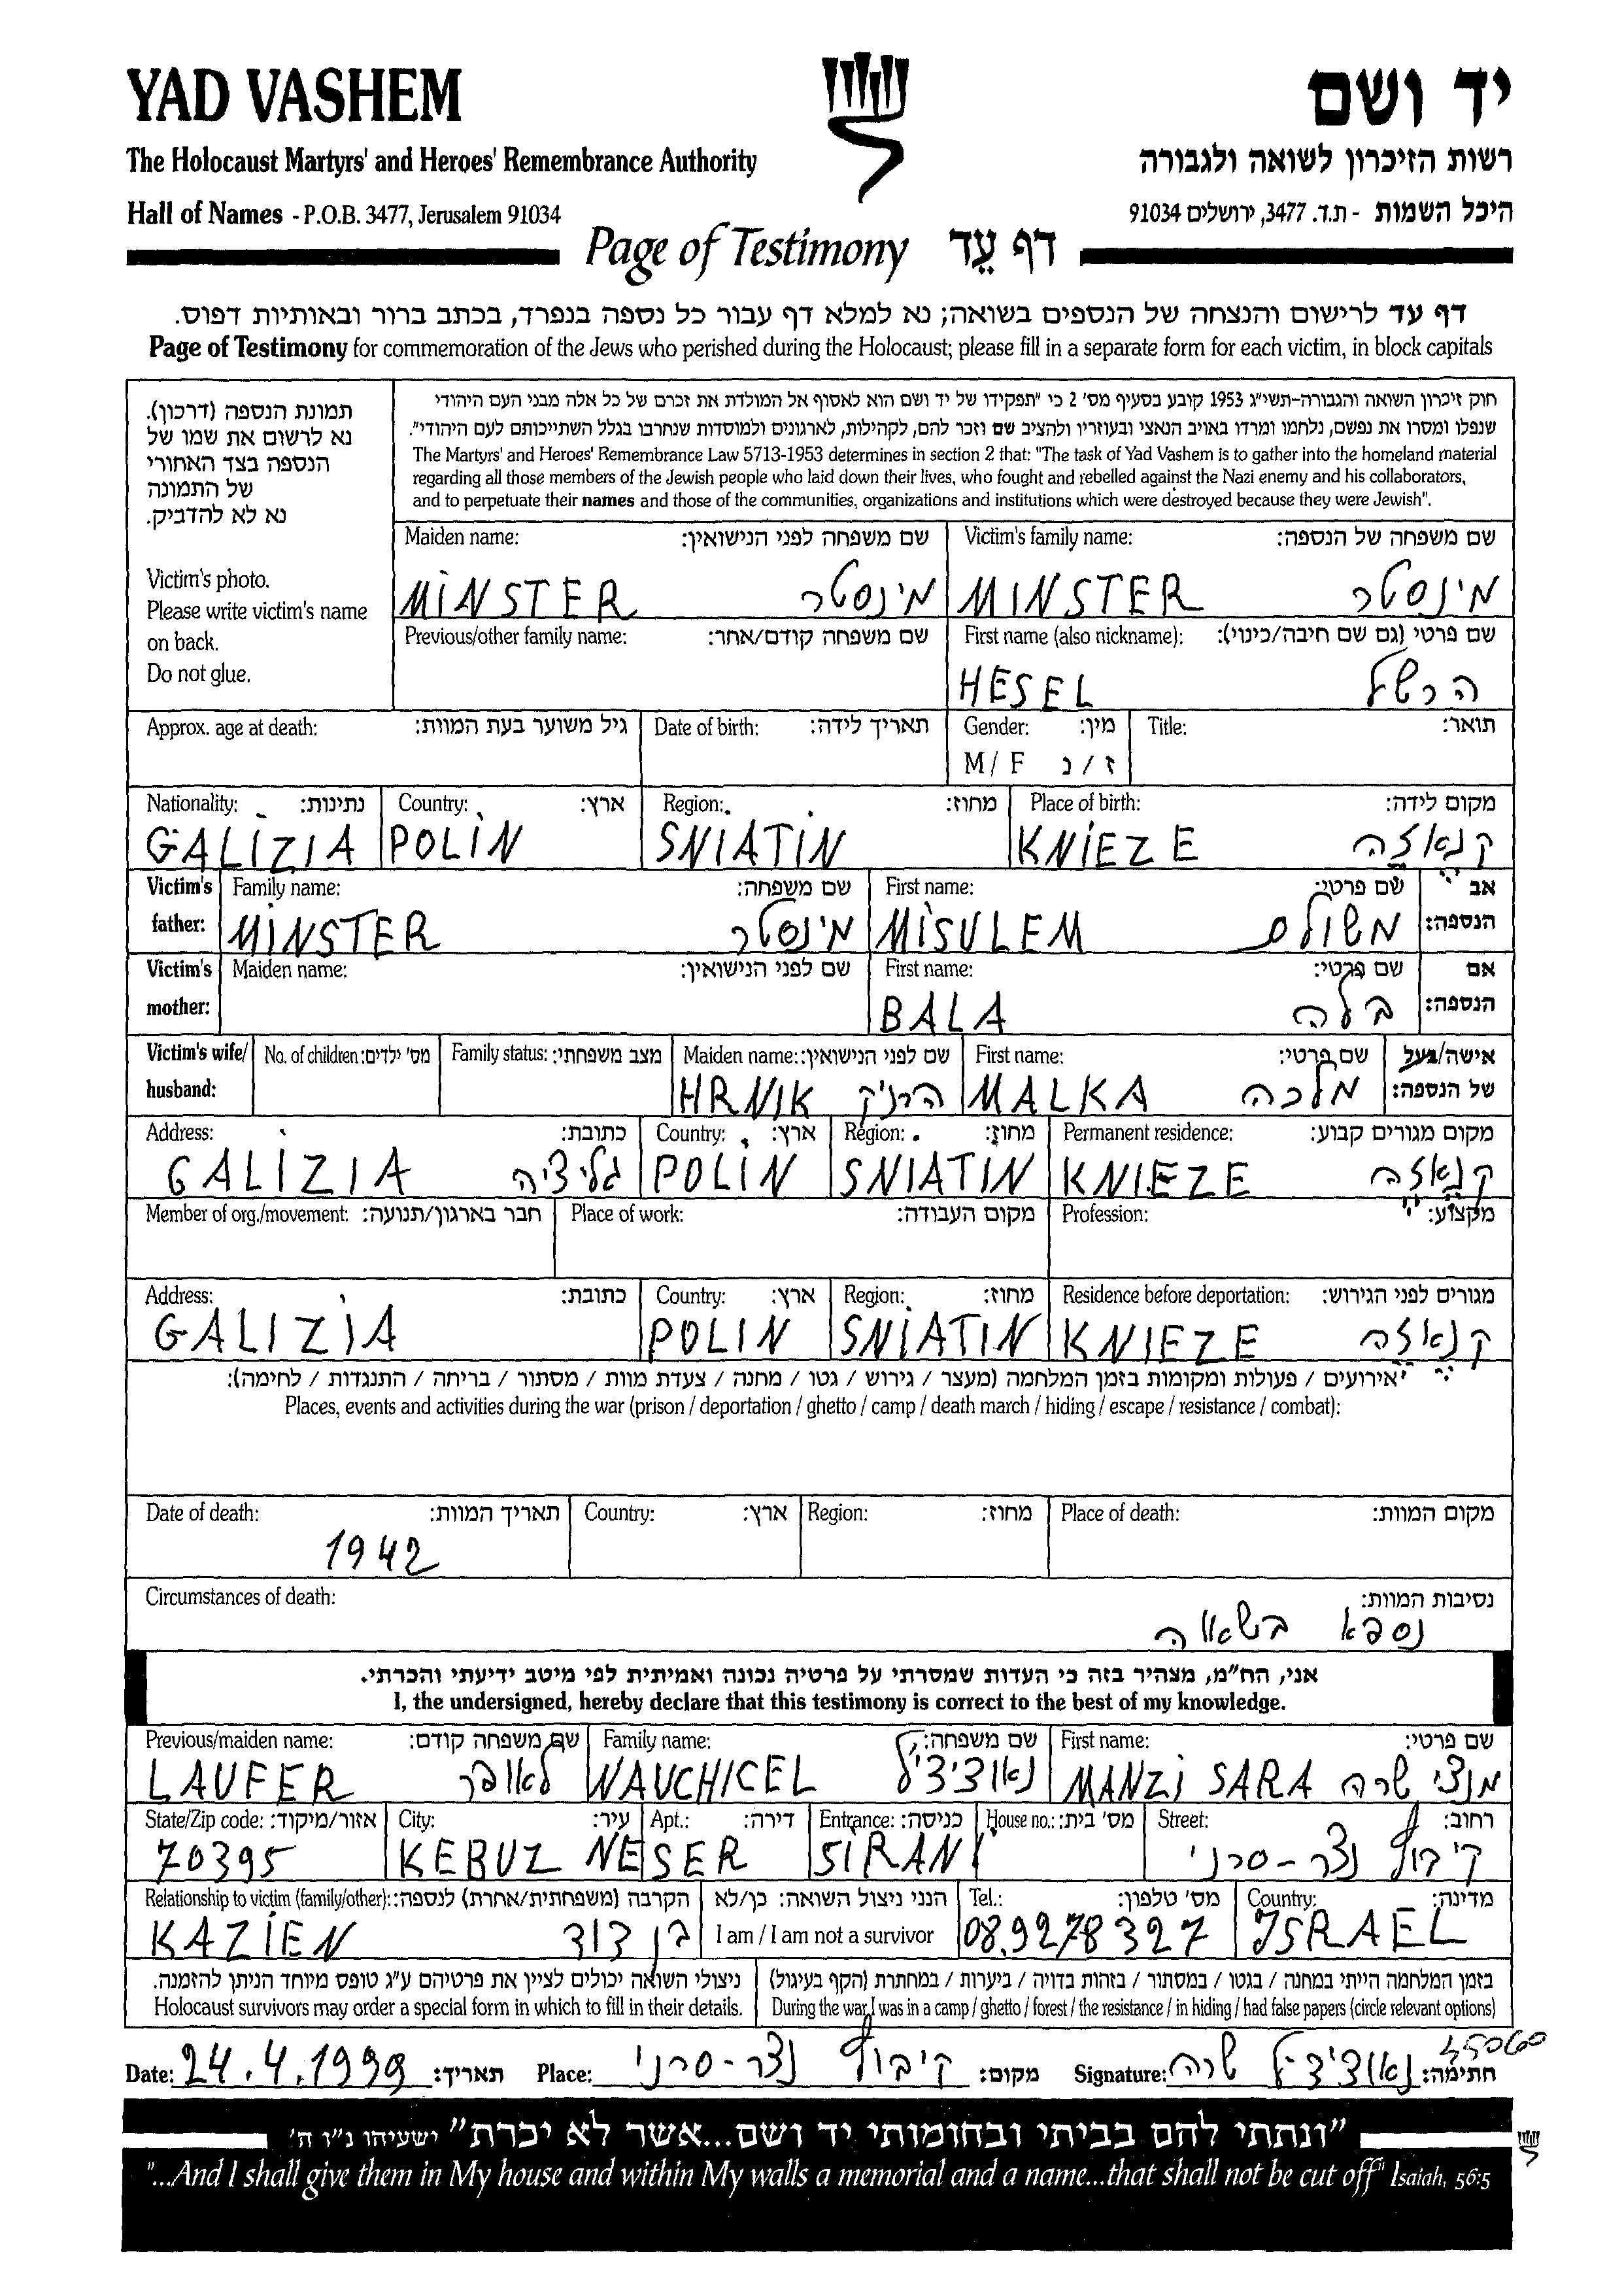 YAD VASHEM יד ושם
The Holocaust Martyrs' and Heroes' Remembrance Authority רשות הזיכרון לשואה ולגבורה
Hall of Names - P.O.B. 3477, Jerusalem 91034 היכל השמות - ת.ד. 3477, ירושלים 91034
Page of Testimony דף עֵד
דף עד לרישום והנצחה של הנספים בשואה; נא למלא דף עבור כל נספה בנפרד, בכתב ברור ובאותיות דפוס.
Page of Testimony for commemoration of the Jews who perished during the Holocaust; please fill in a separate form for each victim, in block capitals
תמונת הנספה (דרכון).
נא לרשום את שמו של
הנספה בצד האחורי
של התמונה
נא לא להדביק.
Victim's photo.
Please write victim's name
on back.
Do not glue.
חוק זיכרון השואה והגבורה-תשי"ג 1953 קובע בסעיף מס' 2 כי "תפקידו של יד ושם הוא לאסוף אל המולדת את זכרם של כל אלה מבני העם היהודי
שנפלו ומסרו את נפשם, נלחמו ומרדו באויב הנאצי ובעוזריו ולהציב שם וזכר להם, לקהילות, לארגונים ולמוסדות שנחרבו בגלל השתייכותם לעם היהודי".
The Martyrs' and Heroes' Remembrance Law 5713-1953 determines in section 2 that: "The task of Yad Vashem is to gather into the homeland material
regarding all those members of the Jewish people who laid down their lives, who fought and rebelled against the Nazi enemy and his collaborators,
and to perpetuate their names and those of the communities, organizations and institutions which were destroyed because they were Jewish".
Maiden name: שם משפחה לפני הנישואין: Victim's family name: שם משפחה של הנספה:
MINSTER מינסטר MINSTER מינסטר
Previous/other family name: שם משפחה קודם/אחר: First name (also nickname): שם פרטי (גם שם חיבה/כינוי):
HESEL הרשל
Approx. age at death: גיל משוער בעת המוות: Date of birth: תאריך לידה: Gender: מין: Title: תואר:
M / F ז / נ
Nationality: נתינות: Country: ארץ: Region: מחוז: Place of birth: מקום לידה:
GALIZIA POLIN SNIATIN KNIEZE קנאזה
Victim's Family name: שם משפחה: First name: שם פרטי: אב
father: MINSTER מינסטר MISULEM משולם הנספה:
Victim's Maiden name: שם לפני הנישואין: First name: שם פרטי: אם
mother: BALA בלה הנספה:
Victim's wife/ No. of children: מס' ילדים: Family status: מצב משפחתי: Maiden name: שם לפני הנישואין: First name: שם פרטי: אישה/בעל
husband: HRNIK הרניק MALKA מלכה של הנספה:
Address: כתובת: Country: ארץ: Region: מחוז: Permanent residence: מקום מגורים קבוע:
GALIZIA גליציה POLIN SNIATIN KNIEZE קנאזה
Member of org./movement: חבר בארגון/תנועה: Place of work: מקום העבודה: Profession: מקצוע:
Address: כתובת: Country: ארץ: Region: מחוז: Residence before deportation: מגורים לפני הגירוש:
GALIZIA POLIN SNIATIN KNIEZE קנאזה
אירועים / פעולות ומקומות בזמן המלחמה (מעצר / גירוש / גטו / מחנה / צעדת מוות / מסתור / בריחה / התנגדות / לחימה):
Places, events and activities during the war (prison / deportation / ghetto / camp / death march / hiding / escape / resistance / combat):
Date of death: תאריך המוות: Country: ארץ: Region: מחוז: Place of death: מקום המוות:
1942
Circumstances of death: נסיבות המוות:
נספא בשאווה
אני, הח"מ, מצהיר בזה כי העדות שמסרתי על פרטיה נכונה ואמיתית לפי מיטב ידיעתי והכרתי.
I, the undersigned, hereby declare that this testimony is correct to the best of my knowledge.
Previous/maiden name: שם משפחה קודם: Family name: שם משפחה: First name: שם פרטי:
LAUFER לאופר NAUCHICEL נאוציציל MANZI SARA מנצי שרה
State/Zip code: אזור/מיקוד: City: עיר: Apt.: דירה: Entrance: כניסה: House no.: מס' בית: Street: רחוב:
70395 KEBUZ NESER SIRANI קיבוץ נצר-סרני
Relationship to victim (family/other): הקרבה (משפחתית/אחרת) לנספה: הנני ניצול השואה: כן/לא Tel.: מס' טלפון: Country: מדינה:
KAZIEN בן דוד I am / I am not a survivor 08.9278327 ISRAEL
ניצולי השואה יכולים לציין את פרטיהם ע"ג טופס מיוחד הניתן להזמנה. בזמן המלחמה הייתי במחנה / בגטו / במסתור / בזהות בדויה / ביערות / במחתרת (הקף בעיגול)
Holocaust survivors may order a special form in which to fill in their details. During the war I was in a camp / ghetto / forest / the resistance / in hiding / had false papers (circle relevant options)
Date: 24.4.1999 תאריך: Place: קיבוץ נצר-סרני מקום: Signature: נאוציציל שרה חתימה:
"ונתתי להם בביתי ובחומותי יד ושם...אשר לא יכרת" ישעיהו נ"ו ה'
"...And I shall give them in My house and within My walls a memorial and a name...that shall not be cut off" Isaiah, 56:5